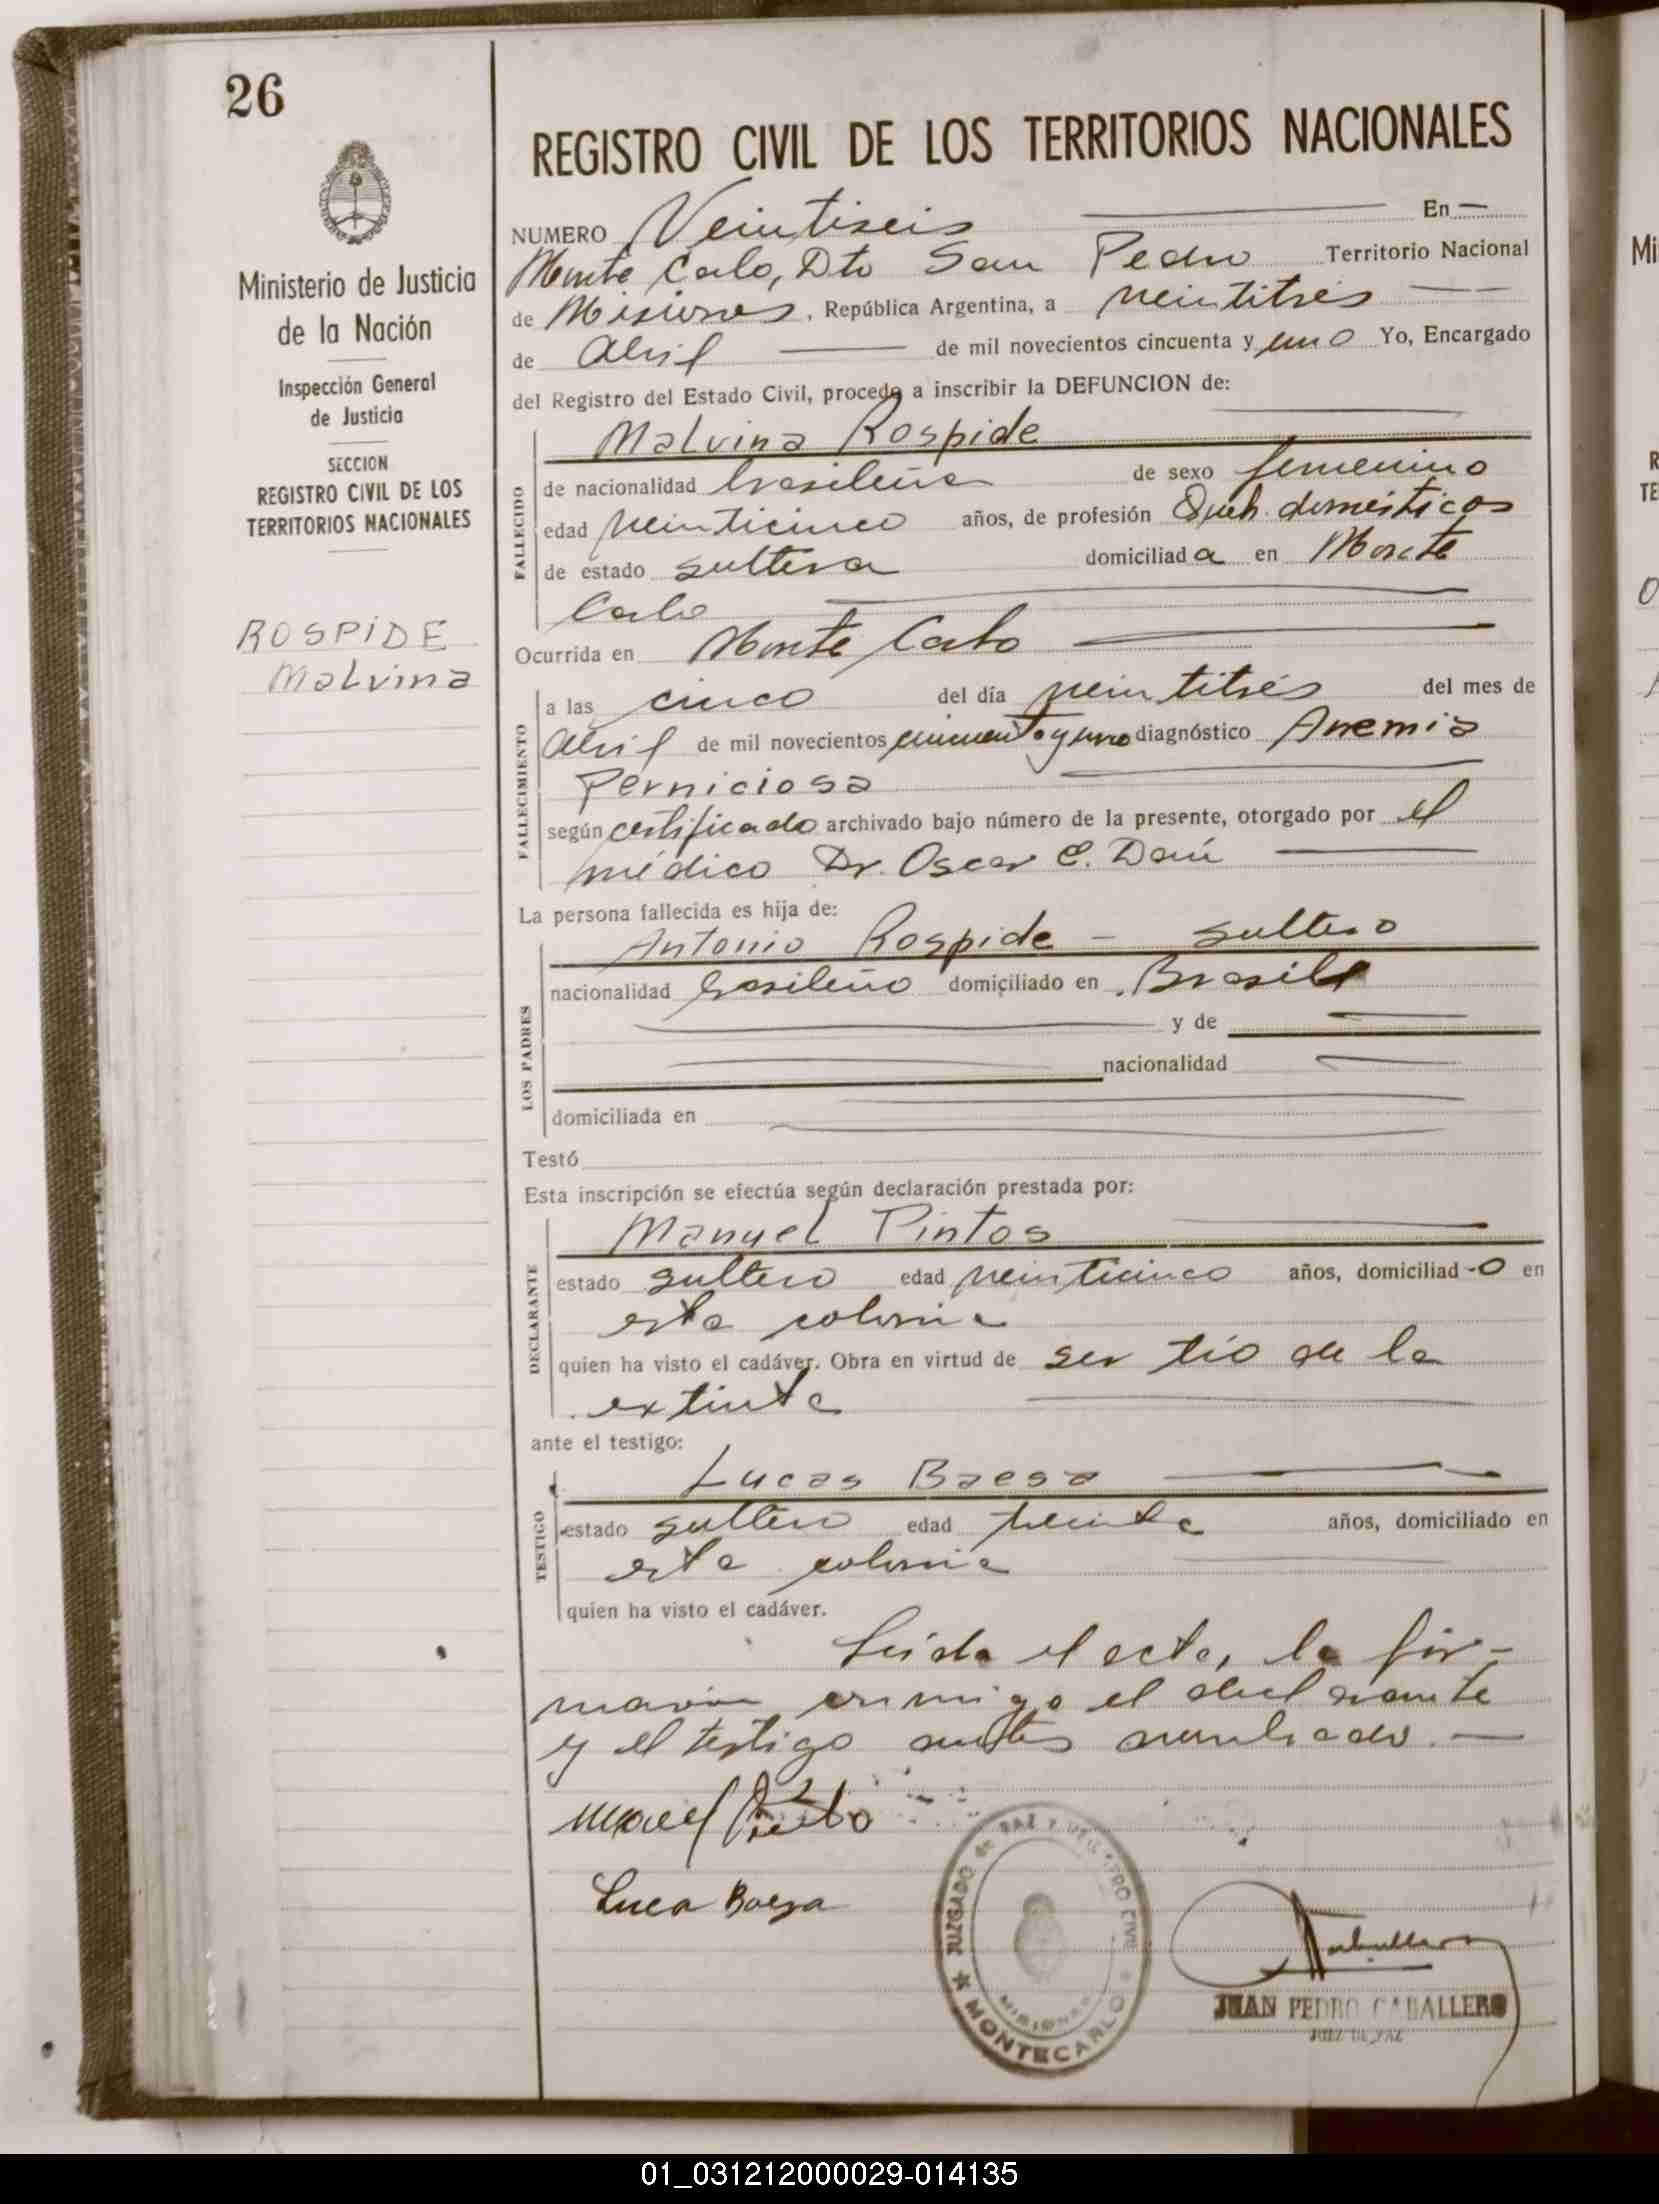 26
REGISTRO CIVIL DE LOS TERRITORIOS NACIONALES
Ministerio de Justicia
de la Nación
Inspección General
de Justicia
SECCION
REGISTRO CIVIL DE LOS
TERRITORIOS NACIONALES
ROSPIDE
Malvina
NUMERO Veintiseis En
Monte Carlo, Dto San Pedro Territorio Nacional
de Misiones, República Argentina, a veintitrés
de Abril de mil novecientos cincuenta y uno Yo, Encargado
del Registro del Estado Civil, procedo a inscribir la DEFUNCION de:
Malvina Rospide
FALLECIDO
de nacionalidad brasileña de sexo femenino
edad veinticinco años, de profesión Queh. domésticos
de estado soltera domiciliada en Monte
Carlo
Ocurrida en Monte Carlo
FALLECIMIENTO
a las cinco del día veintitrés del mes de
Abril de mil novecientos cincuenta y uno diagnóstico Anemia
Perniciosa
según certificado archivado bajo número de la presente, otorgado por el
médico Dr. Oscar E.
La persona fallecida es hija de:
LOS PADRES
Antonio Rospide - soltero
nacionalidad brasileño domiciliado en Brasil
y de
nacionalidad
domiciliada en
Testó
Esta inscripción se efectúa según declaración prestada por:
DECLARANTE
Manuel Pintos
estado soltero edad veinticinco años, domiciliad-o en
esta colonia
quien ha visto el cadáver. Obra en virtud de ser tío de la
extinta
ante el testigo:
TESTIGO
Lucas Baesa
estado soltero edad treinta años, domiciliado en
esta colonia
quien ha visto el cadáver.
Leída el acta, la fir-
maron conmigo el declarante
y el testigo antes nombrado.-
Luca Baesa
JUZGADO de PAZ Y REGISTRO CIVIL
MISIONES
MONTECARLO
JUAN PEDRO CABALLERO
JUEZ DE PAZ
01_031212000029-014135